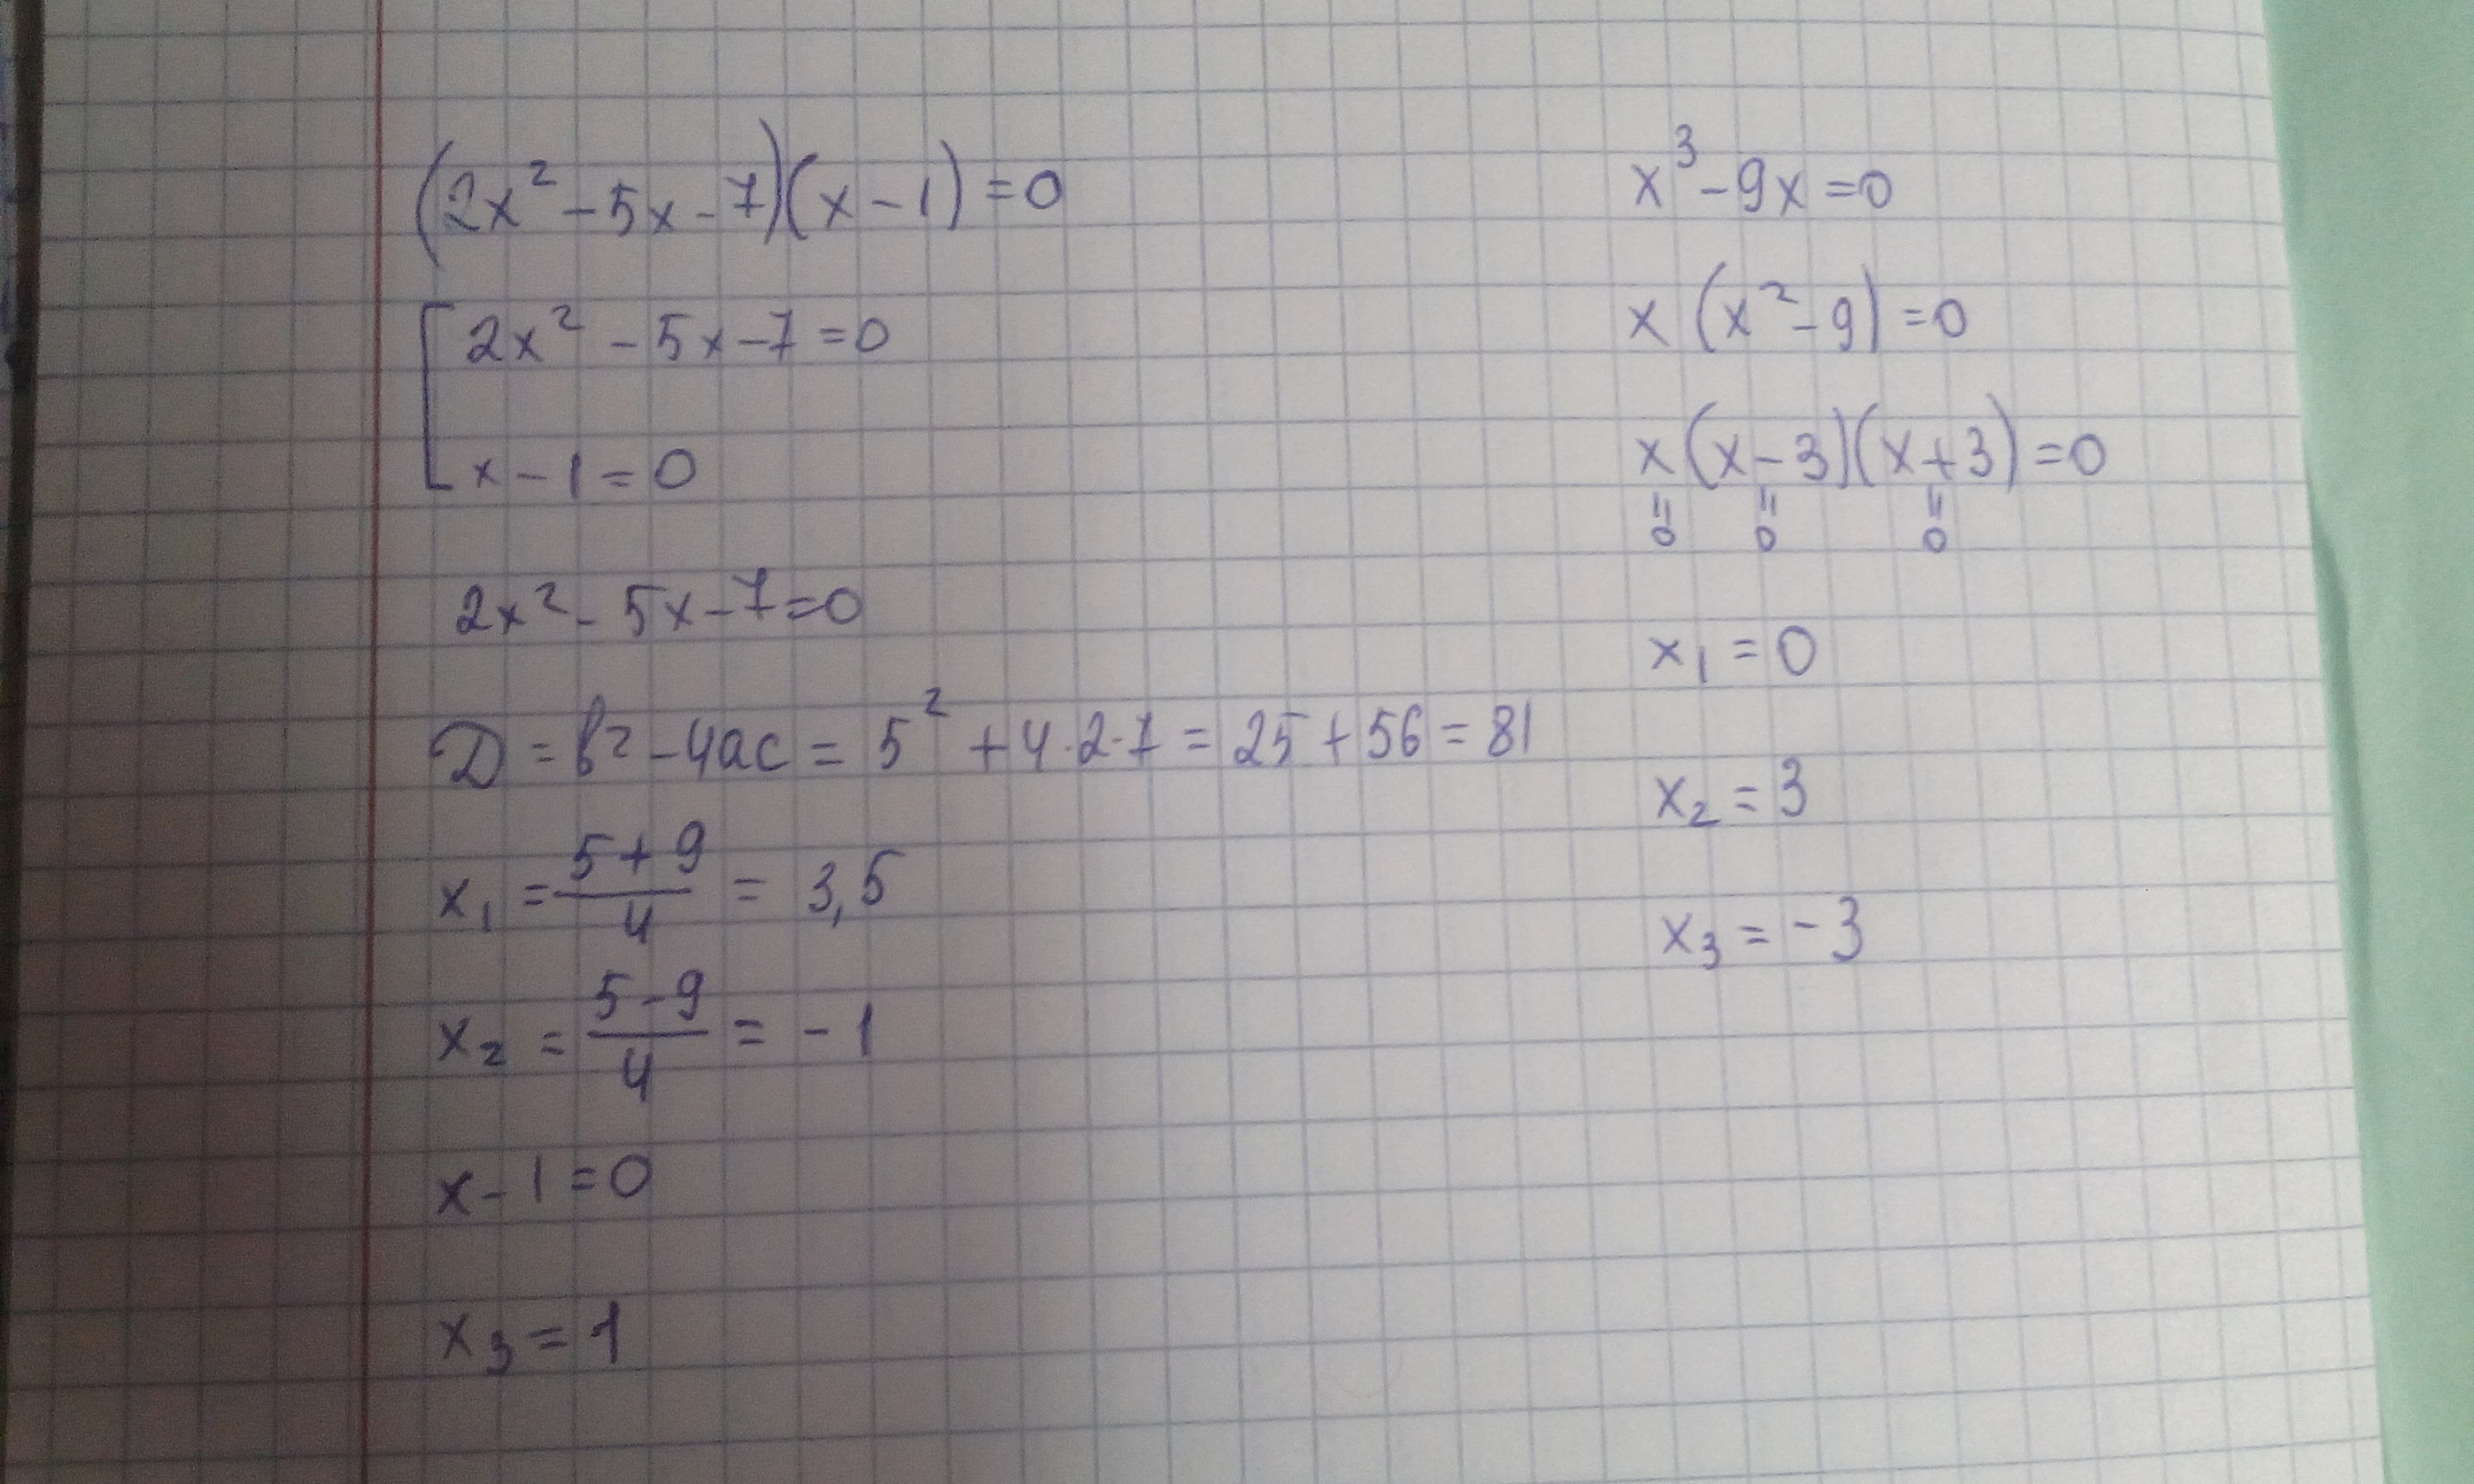 (2x² - 5x - 7)(x - 1) = 0
2x² - 5x - 7 = 0
x - 1 = 0
2x² - 5x - 7 = 0
D = b² - 4ac = 5² + 4·2·7 = 25 + 56 = 81
x₁ = (5 + 9)/4 = 3,5
x₂ = (5 - 9)/4 = - 1
x - 1 = 0
x₃ = 1
x³ - 9x = 0
x (x² - 9) = 0
x (x - 3)(x + 3) = 0
= 0 = 0 = 0
x₁ = 0
x₂ = 3
x₃ = - 3